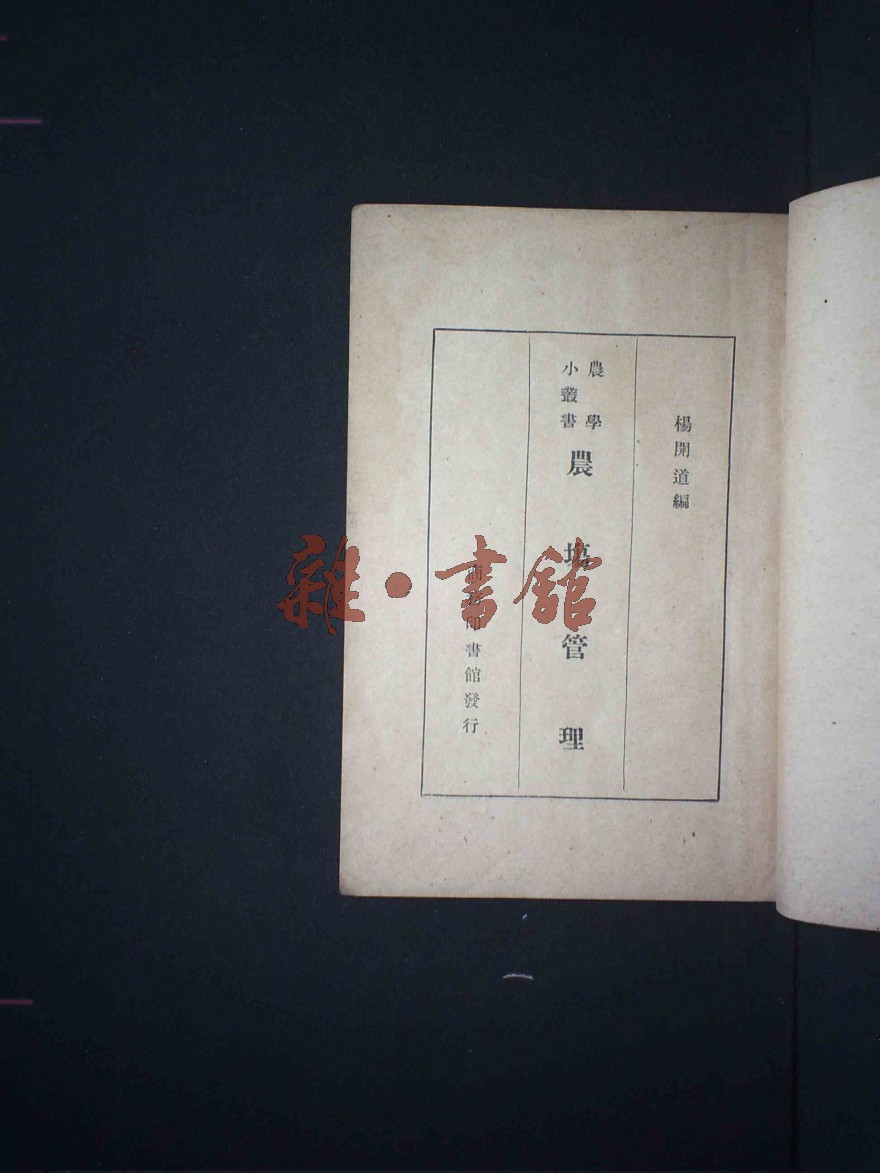 楊開道編
農學
小叢書
農場管理
商務印書館發行
雜·書館